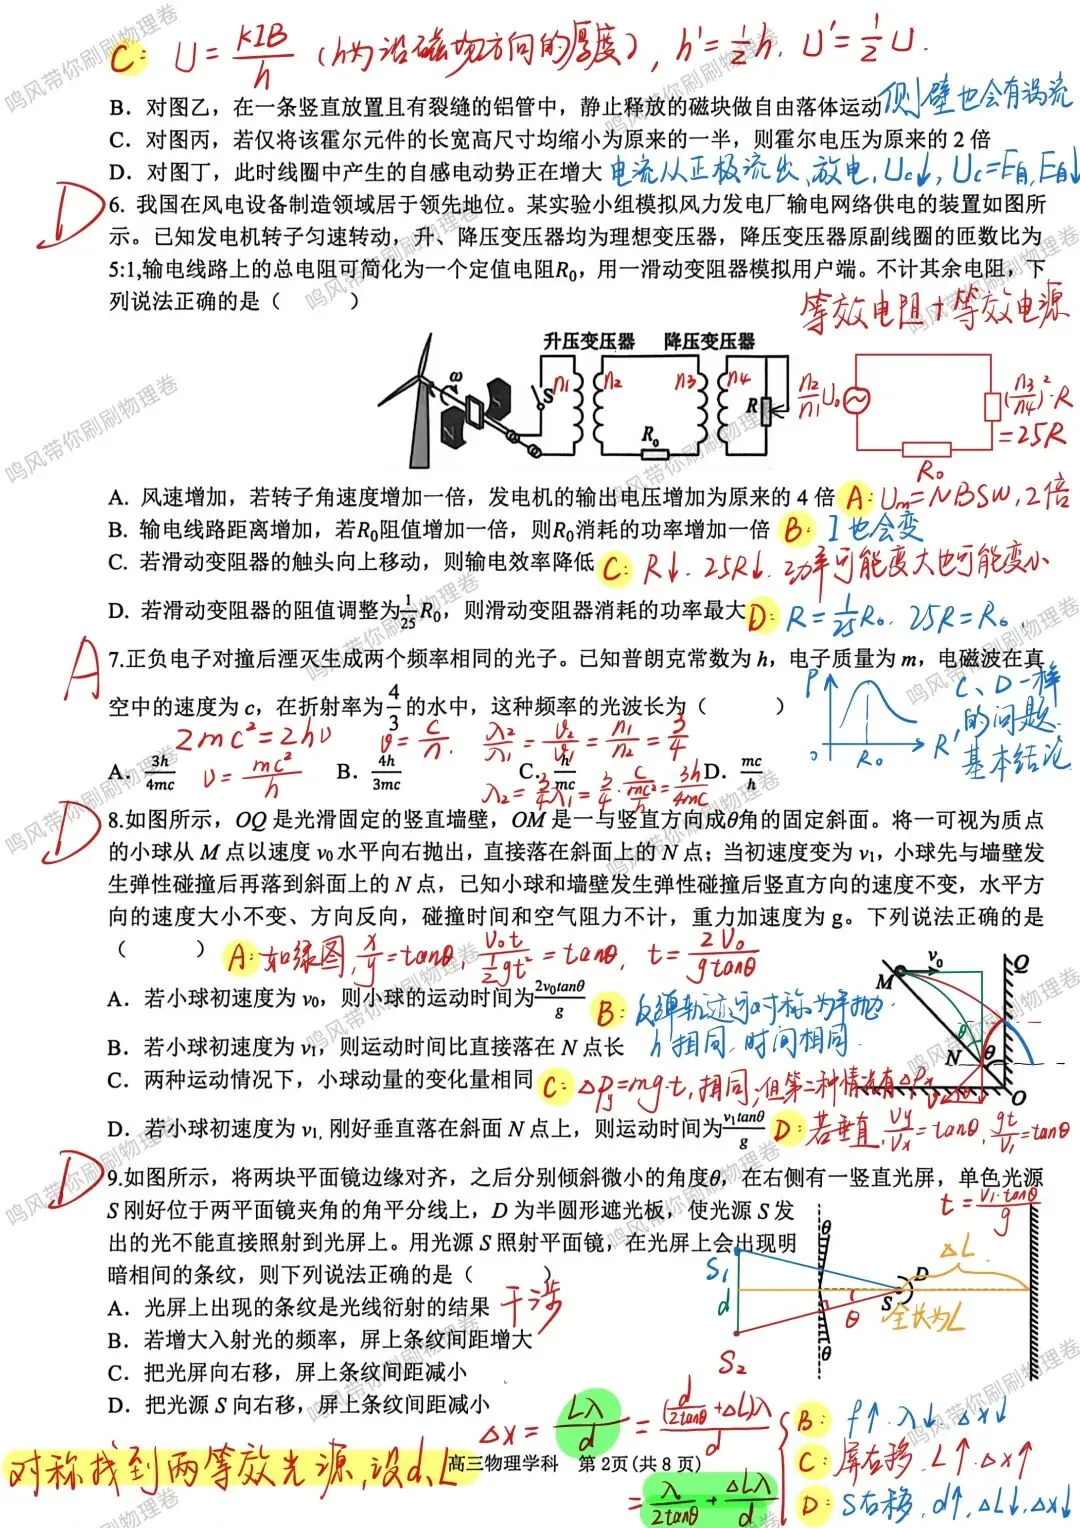 C: U=KIB/h (h为沿磁场方向的厚度), h'=1/2h, U'=1/2U.
B. 对图乙，在一条竖直放置且有裂缝的铝管中，静止释放的磁块做自由落体运动 侧壁也会有涡流
C. 对图丙，若仅将该霍尔元件的长宽高尺寸均缩小为原来的一半，则霍尔电压为原来的 2 倍
D. 对图丁，此时线圈中产生的自感电动势正在增大 电流从正极流出、放电, Uc↓, Uc=E自, E自↓
D
6. 我国在风电设备制造领域居于领先地位。某实验小组模拟风力发电厂输电网络供电的装置如图所
示。已知发电机转子匀速转动，升、降压变压器均为理想变压器，降压变压器原副线圈的匝数比为
5:1,输电线路上的总电阻可简化为一个定值电阻R₀，用一滑动变阻器模拟用户端。不计其余电阻，下
列说法正确的是（ ）
等效电阻+等效电源
升压变压器 降压变压器
ω S N S n1 n2 n3 n4 R R₀
n2/n1 U₀ (n3/n4)²·R
=25R
R₀
A. 风速增加，若转子角速度增加一倍，发电机的输出电压增加为原来的 4 倍 A: Um=NBSω, 2倍
B. 输电线路距离增加，若R₀阻值增加一倍，则R₀消耗的功率增加一倍 B: I也会变
C. 若滑动变阻器的触头向上移动，则输电效率降低 C: R↓. 25R↓. 功率可能变大也可能变小
D. 若滑动变阻器的阻值调整为1/25R₀，则滑动变阻器消耗的功率最大 D: R=1/25R₀. 25R=R₀.
A
7.正负电子对撞后湮灭生成两个频率相同的光子。已知普朗克常数为 h，电子质量为 m，电磁波在真
空中的速度为 c，在折射率为4/3的水中，这种频率的光波长为（ ）
P C、D一样
的问题.
0 R₀ R' 基本结论
2mc²=2hν v=c/n. λ2/λ1=v2/v1=n1/n2=3/4
A. 3h/4mc ν=mc²/h B. 4h/3mc C. h/mc D. mc/h
λ2=3/4λ1=3/4·c/(mc²/h)=3h/4mc
D
8.如图所示，OQ 是光滑固定的竖直墙壁，OM 是一与竖直方向成θ角的固定斜面。将一可视为质点
的小球从 M 点以速度 v₀水平向右抛出，直接落在斜面上的 N 点；当初速度变为 v₁，小球先与墙壁发
生弹性碰撞后再落到斜面上的 N 点，已知小球和墙壁发生弹性碰撞后竖直方向的速度不变，水平方
向的速度大小不变、方向反向，碰撞时间和空气阻力不计，重力加速度为 g。下列说法正确的是
（ ） A: 如绿图, x/y=tanθ, v₀t/(1/2gt²)=tanθ, t=2v₀/gtanθ
M v₀ Q N θ θ O
A. 若小球初速度为 v₀，则小球的运动时间为2v₀tanθ/g B: 反弹轨迹可对称为平抛
B. 若小球初速度为 v₁，则运动时间比直接落在 N 点长 h相同, 时间相同.
C. 两种运动情况下，小球动量的变化量相同 C: ΔPy=mg·t, 相同, 但第二种情况有ΔPx
D. 若小球初速度为 v₁, 刚好垂直落在斜面 N 点上，则运动时间为v₁tanθ/g D: 若垂直, vy/vx=tanθ, gt/v₁=tanθ
t=v₁·tanθ/g
D
9.如图所示，将两块平面镜边缘对齐，之后分别倾斜微小的角度θ，在右侧有一竖直光屏，单色光源
S 刚好位于两平面镜夹角的角平分线上，D 为半圆形遮光板，使光源 S 发
出的光不能直接照射到光屏上。用光源 S 照射平面镜，在光屏上会出现明
暗相间的条纹，则下列说法正确的是（ ）
A. 光屏上出现的条纹是光线衍射的结果 干涉
B. 若增大入射光的频率，屏上条纹间距增大
C. 把光屏向右移，屏上条纹间距减小
D. 把光源 S 向右移，屏上条纹间距减小
θ ΔL S₁ d S D θ 全长为L S₂ θ
Δx=Lλ/d=(d/2tanθ+ΔL)λ/d
=λ/2tanθ+ΔLλ/d
B: f↑.λ↓.Δx↓
C: 屏右移, L↑.Δx↑
D: S右移, d↑.ΔL↓.Δx↓
对称找到两等效光源,设d、L
高三物理学科 第 2页(共 8 页)
鸣风带你刷刷物理卷